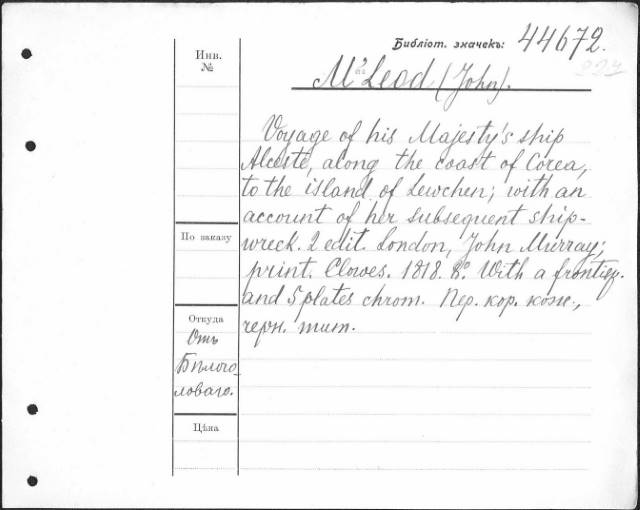 Библіот. значекъ: 44672.
Инв.
№
M'Leod (John).
Voyage of his Majesty's ship
Alceste, along the coast of Corea,
to the island of Lewchew; with an
account of her subsequent ship-
wreck. 2 edit. London, John Murray;
print. Clowes. 1818. 8º. With a frontisp.
and 5 plates chrom. Пер. кор. кож.,
черн. тит.
По заказу
Откуда
Отъ
Бѣлого-
ловаго.
Цѣна